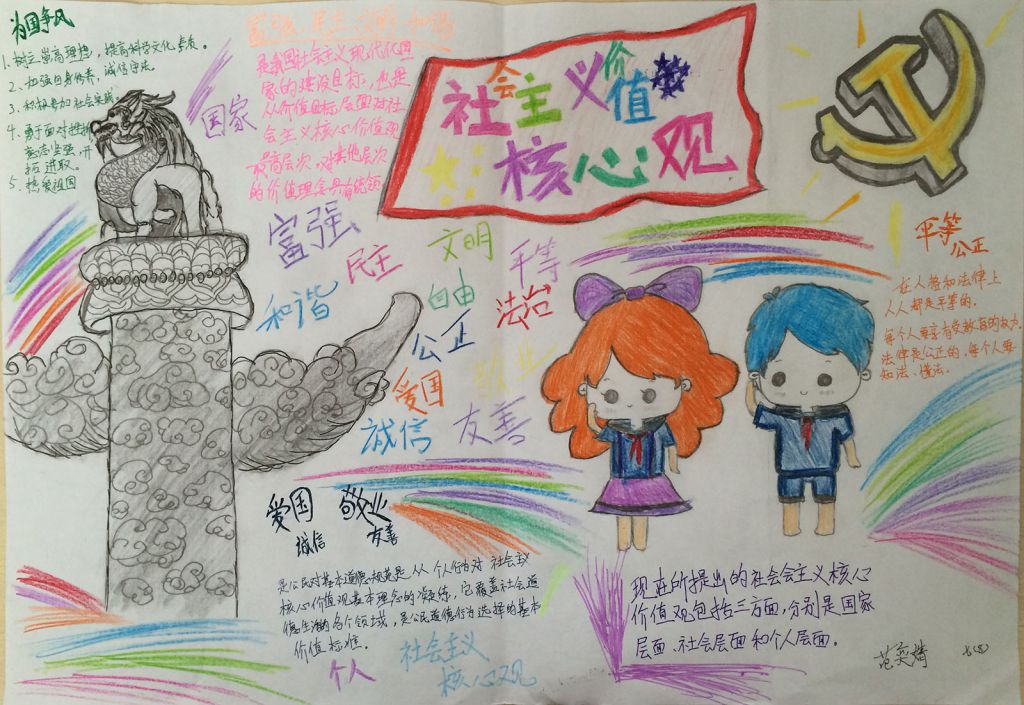 为国争风
1、树立崇高理想，提高科学文化素质。
2、加强自身修养，诚信守法
3、积极参加社会实践
4、勇于面对挫折
意志坚强，开
拓进取。
5、热爱祖国
国家
富强、民主、文明、和谐
是我国社会主义现代化国
家的建设目标，也是
从价值目标层面对社
会主义核心价值观
最高层次，对其他层次
的价值理念具有统领
社会主义价值
核心观
平等
公正
在人格和法律上
人人都是平等的。
每个人要享有受教育的权力。
法律是公正的，每个人要
知法、懂法。
富强
民主
文明
平等
和谐
自由
法治
公正
爱国
敬业
诚信
友善
爱国 敬业
诚信 友善
是公民对基本道德规范是从个人行为对社会主义
核心价值观基本理念的凝练，它覆盖社会道
德生活的各个领域，是公民道德行为选择的基本
价值标准。
个人
社会主义
核心观
现在所提出的社会会主义核心
价值观包括三方面，分别是国家
层面、社会层面和个人层面。